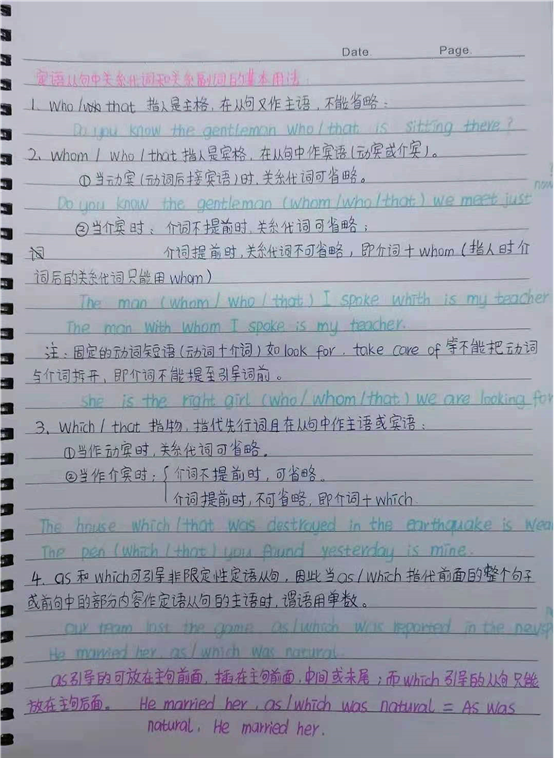 Date.          Page.
定语从句中关系代词和关系副词的基本用法
1. Who/ that 指人是主格，在从句又作主语，不能省略：
Do you know the gentleman who/that is sitting there?
2. whom / who / that 指人是宾格，在从句中作宾语（动宾或介宾）。
①当动宾（动词后接宾语）时，关系代词可省略。
now
Do you know the gentleman (whom/who/that) we meet just
②当介宾时：介词不提前时，关系代词可省略；
介词提前时，关系代词不可省略，即介词+whom（指人时介
词后的关系代词只能用whom）
The man (whom/who/that) I spoke whith is my teacher
The man with whom I spoke is my teacher.
注：固定的动词短语（动词+介词）如look for, take care of 等不能把动词
与介词拆开，即介词不能提至引导词前。
she is the right girl (who/whom/that) we are looking for
3. Which / that 指物，指代先行词且在从句中作主语或宾语：
①当作动宾时，关系代词可省略。
②当作介宾时：{介词不提前时，可省略。
介词提前时，不可省略，即介词+which.
The house which/that was destroyed in the earthquake is wea
The pen (which/that) you found yesterday is mine.
4. as 和 which可引导非限定性定语从句，因此当as/which 指代前面的整个句子
或前句中的部分内容作定语从句的主语时，谓语用单数。
our team lost the game, as/which was reported in the newsp
He married her, as/which was natural.
as引导的可放在主句前面，插在主句前面，中间或末尾；而which引导的从句只能
放在主句后面。 He married her, as/which was natural = As was
natural, He married her.